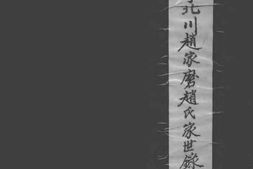 北川趙家磨趙氏家世錄